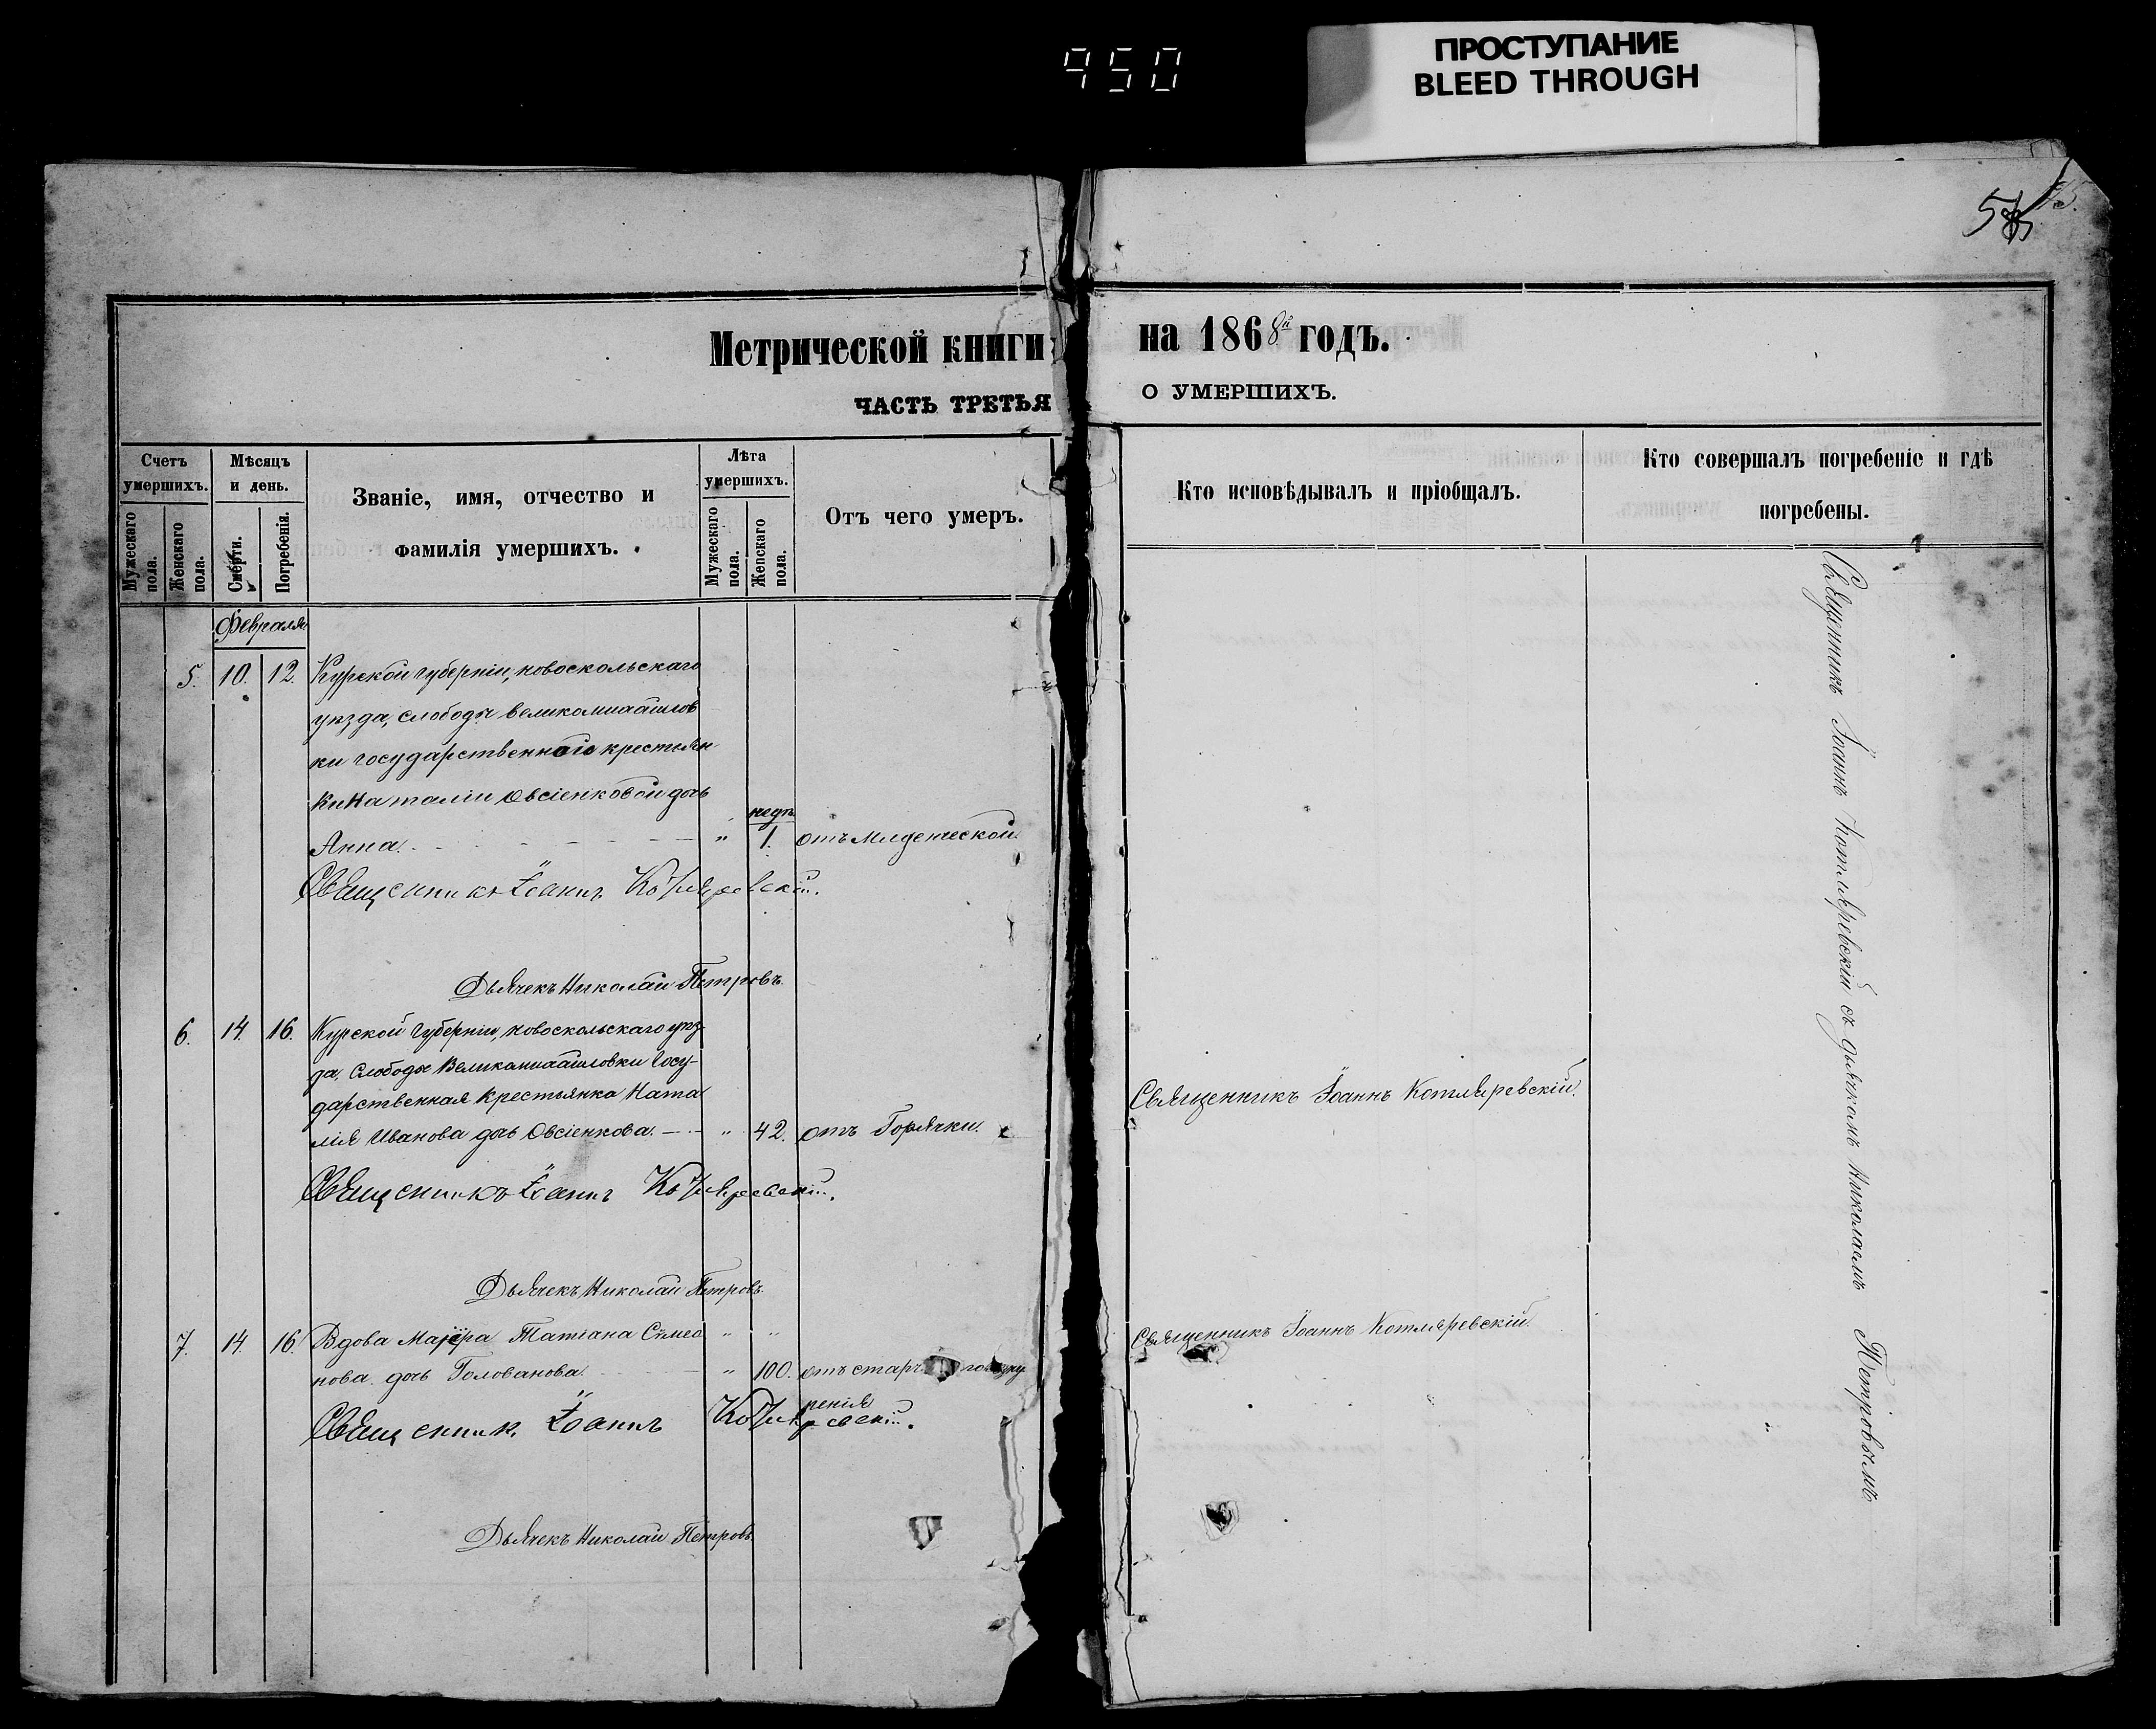 950
ПРОСТУПАНИЕ
BLEED THROUGH
Метрической книги на 1868й годъ.
ЧАСТЬ ТРЕТЬЯ О УМЕРШИХЪ.
Счетъ умершихъ.
Мужескаго пола.
Женскаго пола.
Мѣсяцъ и день.
Смерти.
Погребенія.
Званіе, имя, отчество и
фамилія умершихъ.
Лѣта умершихъ.
Мужескаго пола.
Женскаго пола.
Отъ чего умеръ.
Кто исповѣдывалъ и пріобщалъ.
Кто совершалъ погребеніе и гдѣ
погребены.
Февраля
5. 10. 12. Курской губерніи, новоскольскаго
уѣзда, слободы великомихайлов
ки государственной крестьян
ки Наталіи Овсіенковой дочь
недѣ.
Анна. " 1. отъ Младенческой.
Священникъ Іоаннъ Котляревскій.
Дьячекъ Николай Петровъ.
6. 14. 16. Курской Губерніи, новоскольскаго уѣз-
да, Слободы Великомихайловки Госу-
дарственная крестьянка Ната
лія Иванова дочь Овсіенкова. " 42. отъ Горячки.
Священникъ Іоаннъ Котляревскій.
Священникъ Іоаннъ Котляревскій.
Дьячекъ Николай Петровъ.
7. 14. 16. Вдова Маіора Татіана Сѵмео " "
нова дочь Голованова. " 100. отъ
ренія
Священникъ Іоаннъ Котляревскій.
Священникъ Іоаннъ Котляревскій.
Дьячекъ Николай Петровъ.
Священникъ Іоаннъ Котляревскій съ дьячкомъ Николаемъ Петровымъ